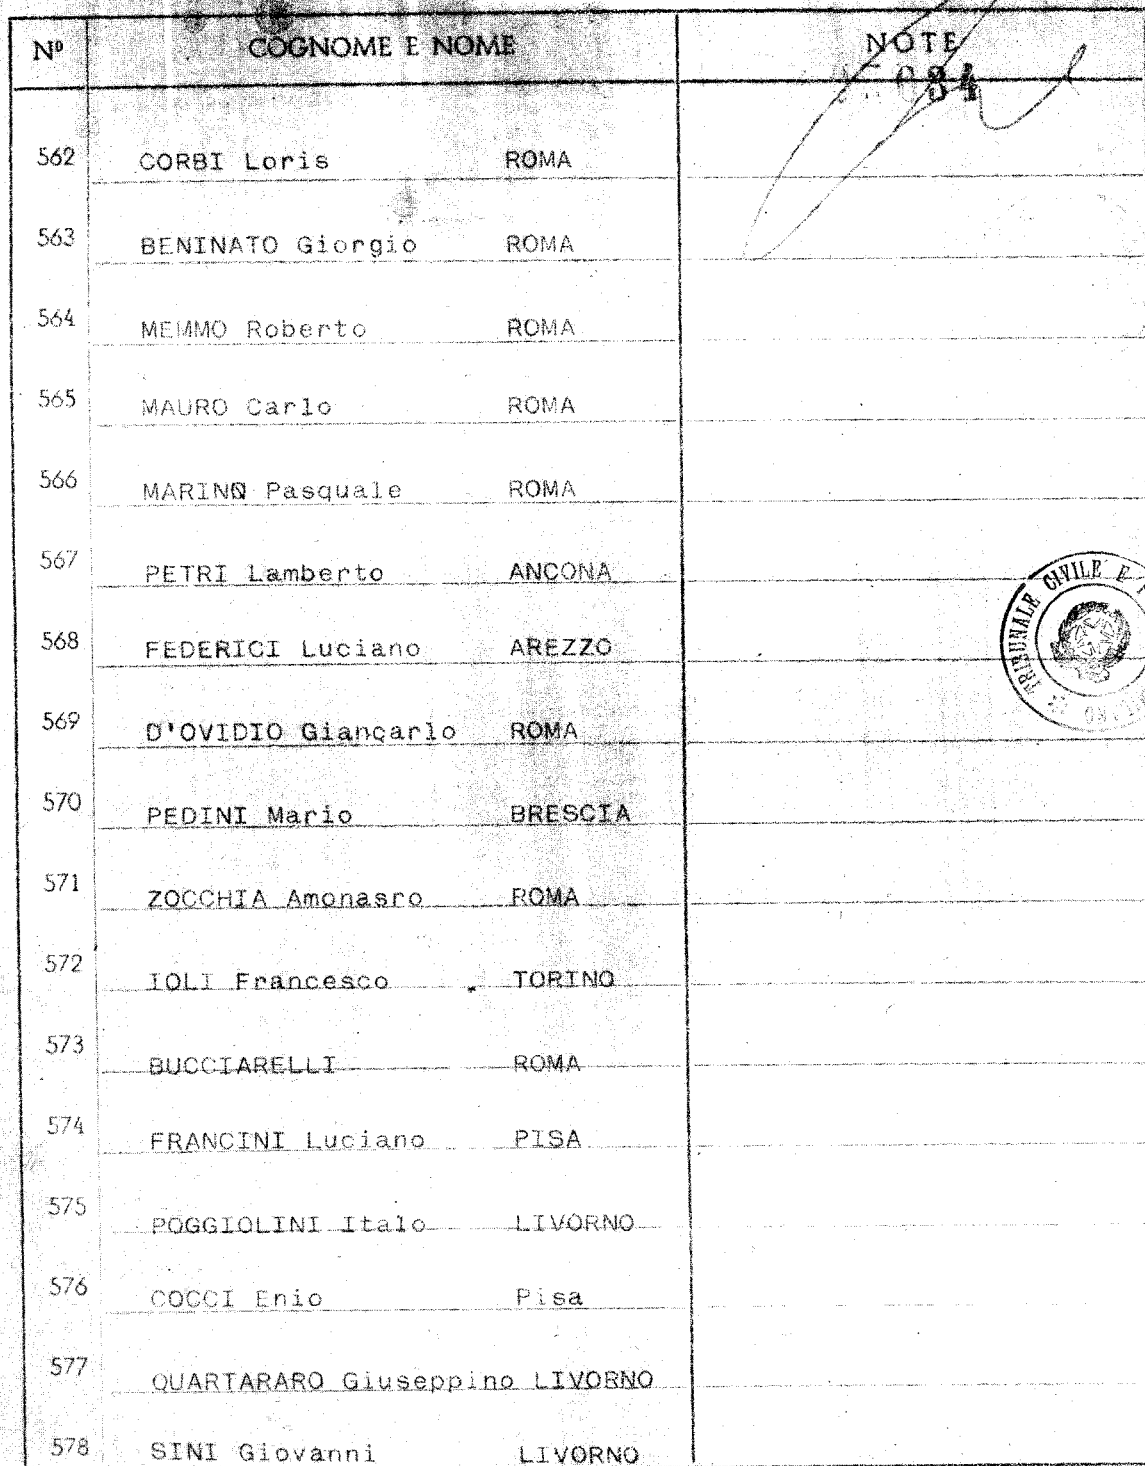 Nº COGNOME E NOME NOTE
084
562 CORBI Loris ROMA
563 BENINATO Giorgio ROMA
564 MEMMO Roberto ROMA
565 MAURO Carlo ROMA
566 MARINO Pasquale ROMA
567 PETRI Lamberto ANCONA
568 FEDERICI Luciano AREZZO
569 D'OVIDIO Giancarlo ROMA
570 PEDINI Mario BRESCIA
571 ZOCCHIA Amonasro ROMA
572 IOLI Francesco TORINO
573 BUCCIARELLI ROMA
574 FRANCINI Luciano PISA
575 POGGIOLINI Italo LIVORNO
576 COCCI Enio Pisa
577 QUARTARARO Giuseppino LIVORNO
578 SINI Giovanni LIVORNO
TRIBUNALE CIVILE E